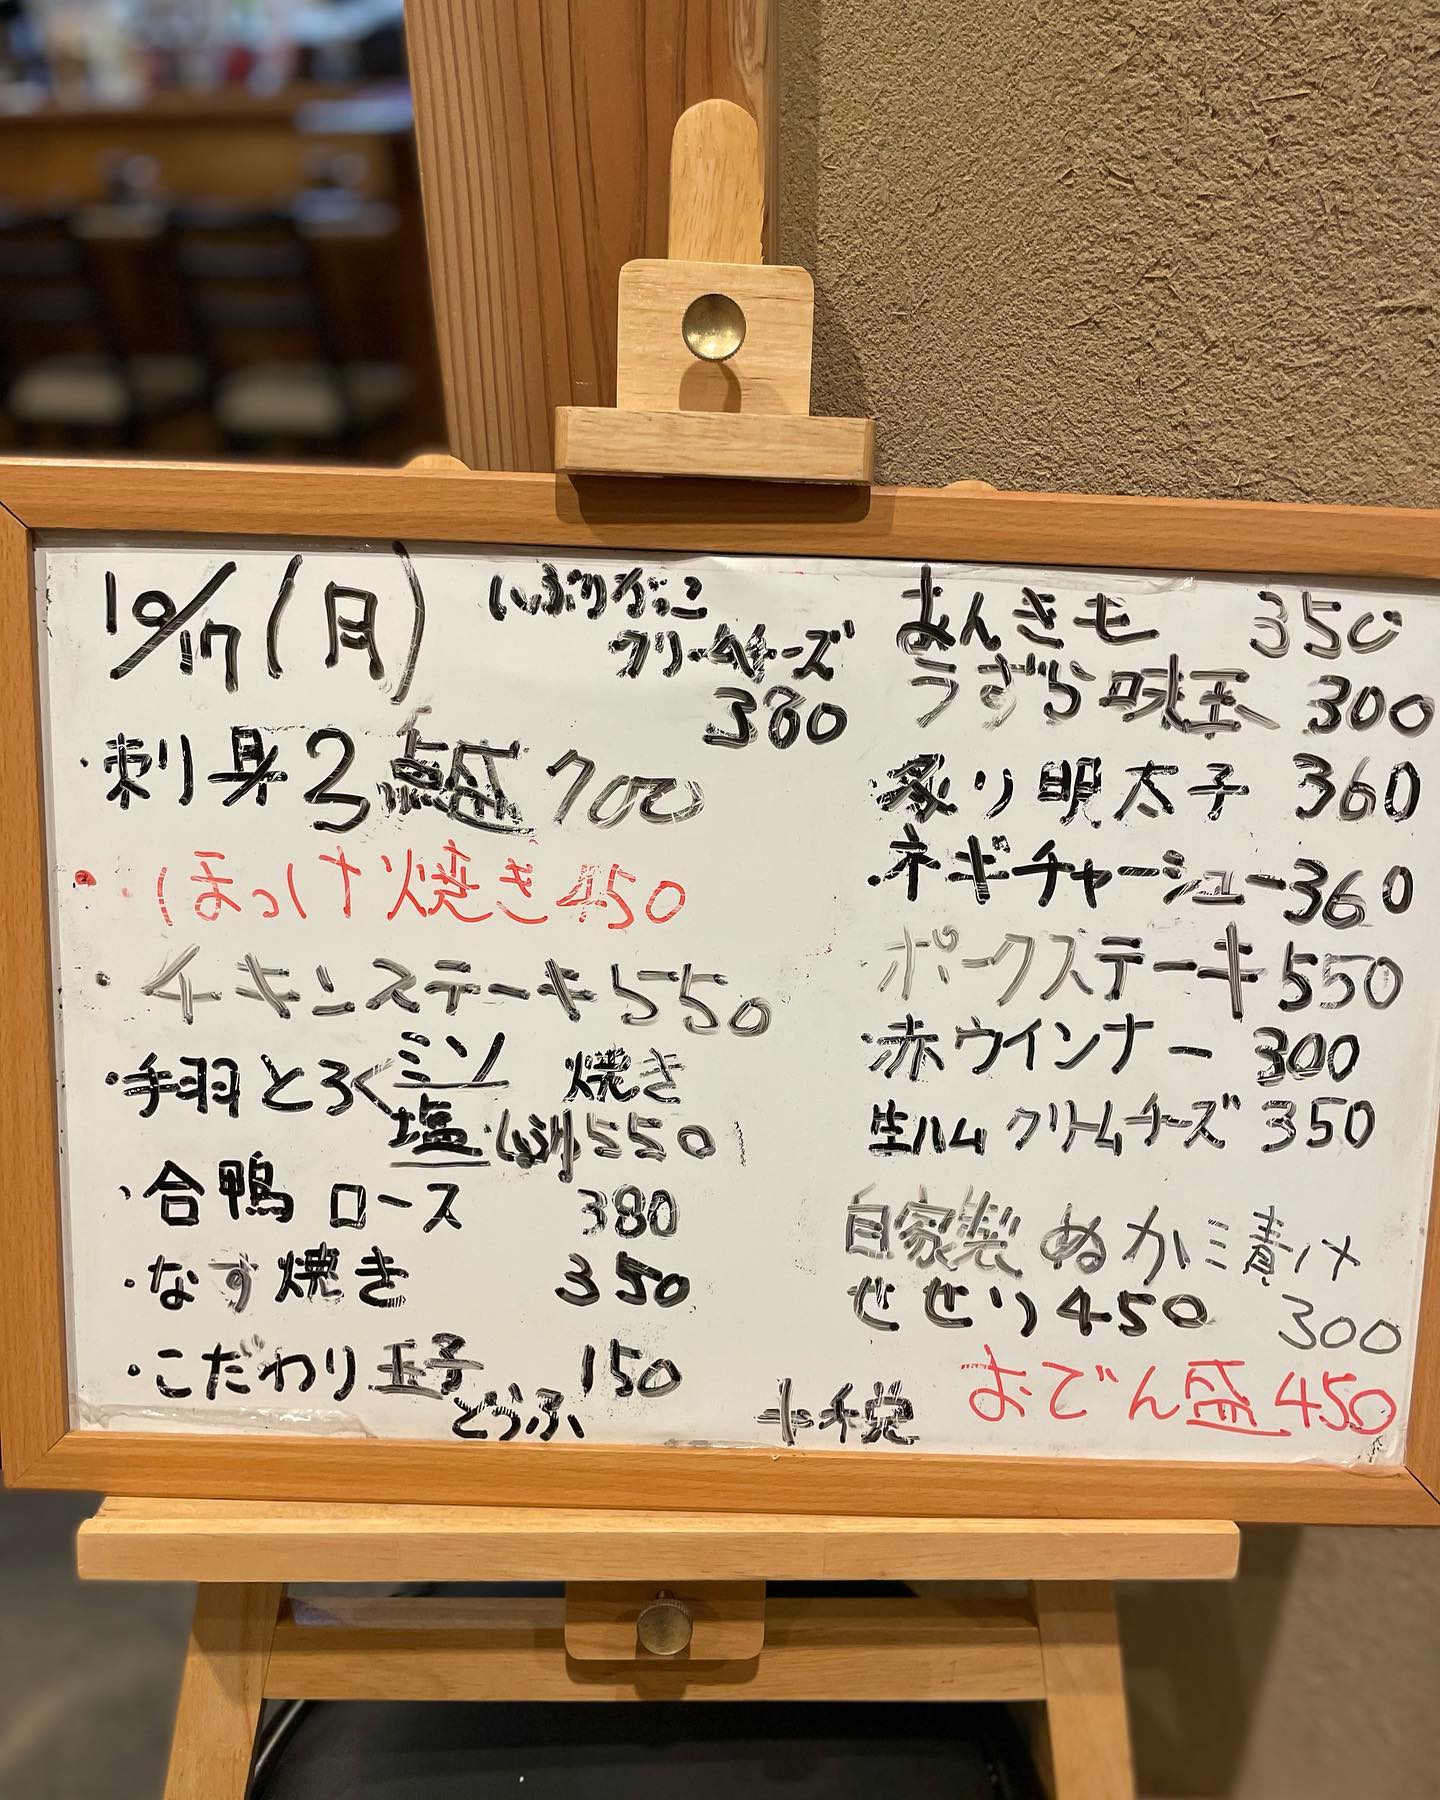 10/17(月)
いぶりがっこ
クリームチーズ
380
・刺身3点盛700
・ほっけ焼き450
・チキンステーキ550
・手羽とろく 焼き
塩 550
・合鴨ロース 380
・なす焼き 350
・こだわり玉子 150
どうふ
あんきも 350
うずら味玉 300
・炙り明太子 360
・ネギチャーシュー360
ポークステーキ550
・赤ウインナー 300
生ハムクリームチーズ 350
自家製ぬか漬け
300
せせり450
おでん盛450
+税